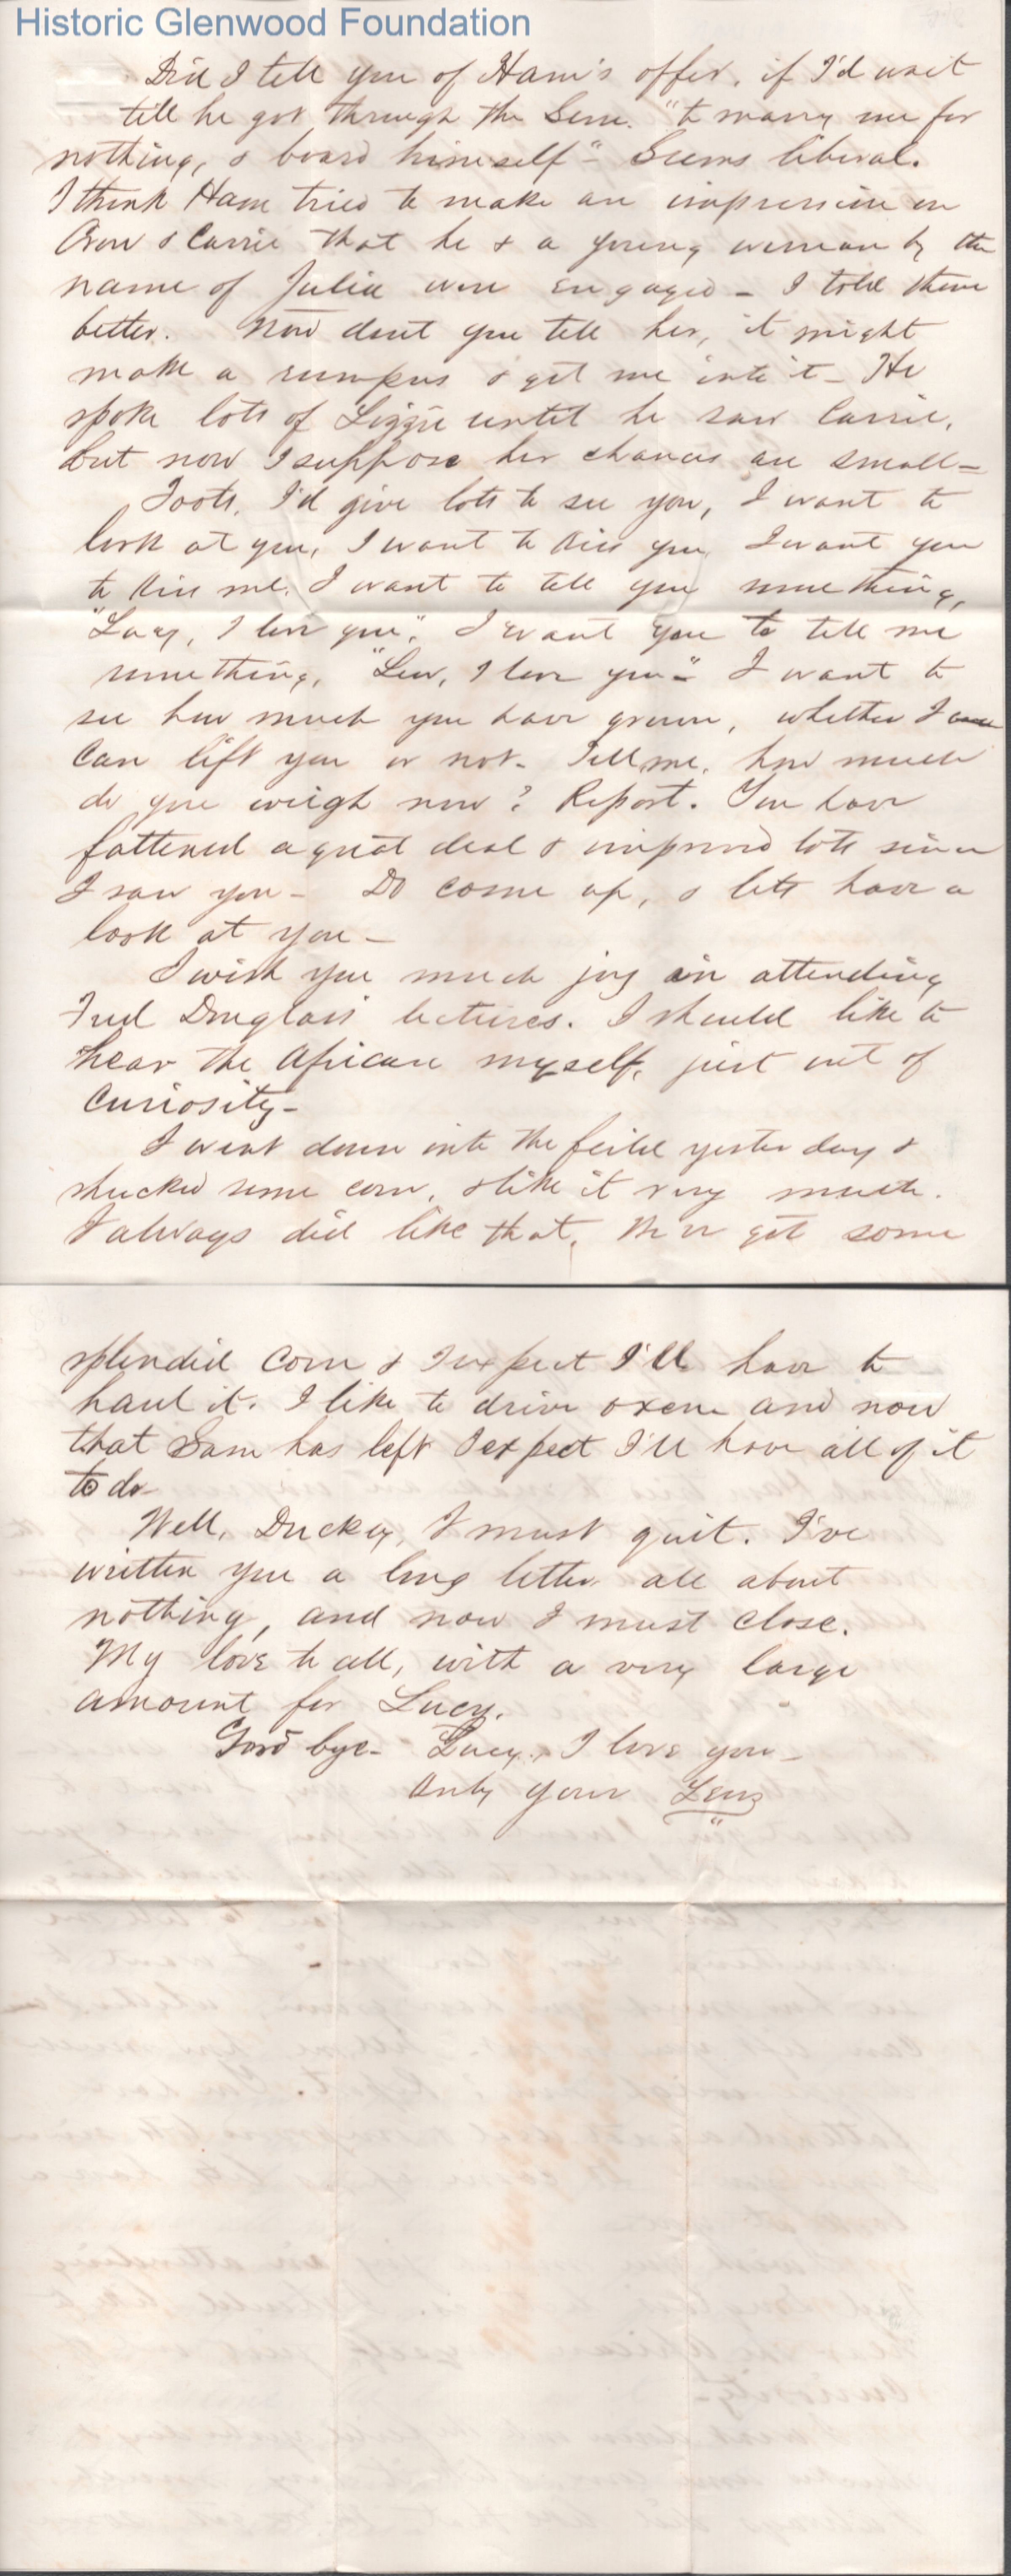 Historic Glenwood Foundation
Did I tell you of Ham's offer, if I'd wait
till he got through the Sem. "to marry me for
nothing, & board himself" - Seems liberal.
I think Ham tried to make an impression on
& Carrie that he & a young woman by the
name of Julia were engaged - I told them
better. Now dont you tell her, it might
make a rumpus & get me into it - He
spoke lots of Lizzie until he saw Carrie,
but now I suppose her chances are small -
Toots, I'd give lots to see you, I want to
look at you, I want to kiss you, I want you
to kiss me, I want to tell you some thing,
"Lucy, I love you", I want you to tell me
some thing, "Lew, I love you" - I want to
see how much you have grown, whether I
can lift you or not - Tell me, how much
do you weigh now? Report. You have
fattened a great deal & improved lots since
I saw you - Do come up, & lets have a
look at you -
I wish you much joy in attending
Fred Douglass lectures. I should like to
hear the African myself, just out of
Curiosity -
I went down into the feild yesterday &
shucked some corn, & like it very much.
I always did like that, got some
splendid corn & I expect I'll have to
haul it. I like to drive oxen and now
that Sam has left I expect I'll have all of it
to do -
Well, Ducky, I must quit. I've
written you a long letter all about
nothing, and now I must close.
My love to all, with a very large
amount for Lucy.
Good bye - Lucy, I love you -
Only your Lew